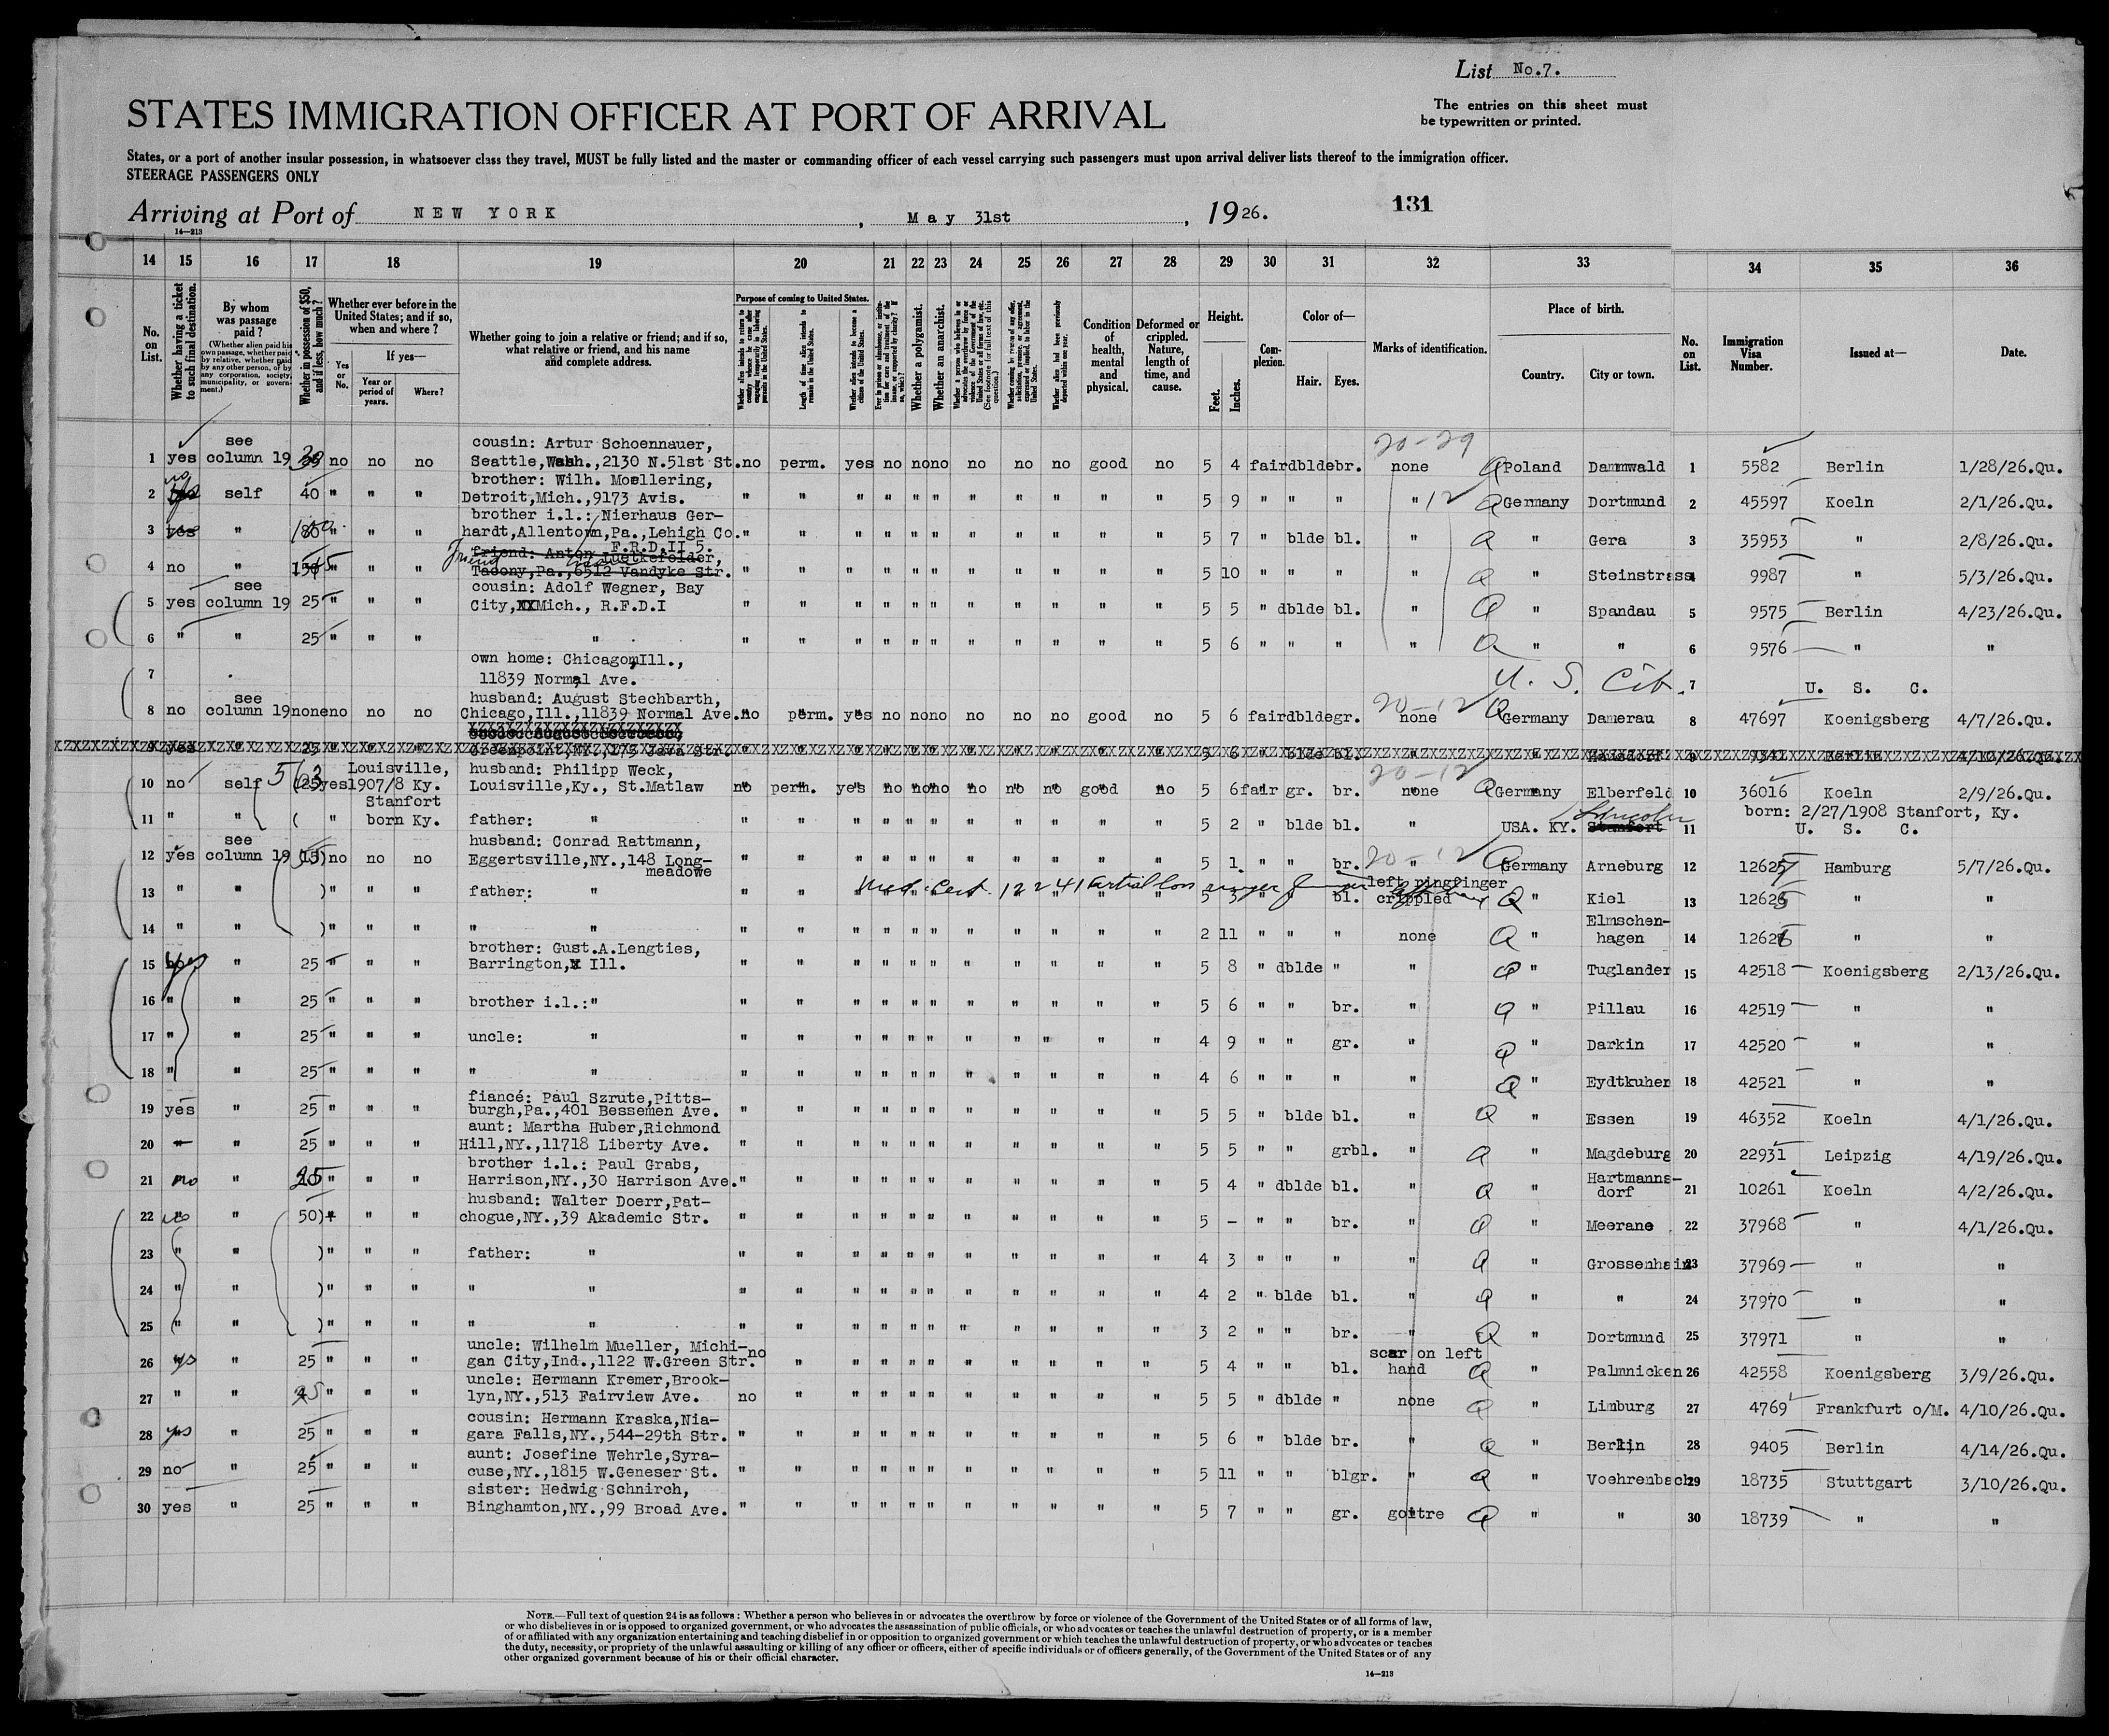 List No.7.
STATES IMMIGRATION OFFICER AT PORT OF ARRIVAL
The entries on this sheet must
be typewritten or printed.
States, or a port of another insular possession, in whatsoever class they travel, MUST be fully listed and the master or commanding officer of each vessel carrying such passengers must upon arrival deliver lists thereof to the immigration officer.
STEERAGE PASSENGERS ONLY
Arriving at Port of NEW YORK, May 31st, 1926. 131
14—213
14 15 16 17 18 19 20 21 22 23 24 25 26 27 28 29 30 31 32 33 34 35 36
No. on List.
Whether having a ticket to such final destination.
By whom was passage paid?
(Whether alien paid his own passage, whether paid by relative, whether paid by any other person, or by any corporation, society, municipality, or government.)
Whether in possession of $50, and if less, how much?
Whether ever before in the United States; and if so, when and where?
Yes or No.
If yes—
Year or period of years.
Where?
Whether going to join a relative or friend; and if so, what relative or friend, and his name and complete address.
Purpose of coming to United States.
Whether a polygamist.
Whether an anarchist.
Condition of health, mental and physical.
Deformed or crippled. Nature, length of time, and cause.
Height.
Feet. Inches.
Complexion.
Color of—
Hair. Eyes.
Marks of identification.
Place of birth.
Country. City or town.
No. on List.
Immigration Visa Number.
Issued at—
Date.
see cousin: Artur Schoennauer, 20-29
1 yes column 19 no no no Seattle,Wash.,2130 N.51st St. no perm. yes no no no no no no good no 5 4 fair dblde br. none Poland Dammwald 1 5582 Berlin 1/28/26.Qu.
brother: Wilh. Moellering,
2 self 40 " " " Detroit,Mich.,9173 Avis. " " " " " " " " " " " 5 9 " " " " 12 Germany Dortmund 2 45597 Koeln 2/1/26.Qu.
brother i.l.: Nierhaus Ger-
3 yes " " " " hardt,Allentown,Pa.,Lehigh Co. " " " " " " " " " " " 5 7 " blde bl. " " Gera 3 35953 " 2/8/26.Qu.
F.R.D.II 5.
friend: Anton Luetkefelder,
4 no " " " " Tacony,Pa.,6512 Vandyke Str. " " " " " " " " " " " 5 10 " " " " " Steinstrass 4 9987 " 5/3/26.Qu.
see cousin: Adolf Wegner, Bay
5 yes column 19 25 " " " City, Mich., R.F.D.I " " " " " " " " " " " 5 5 " dblde bl. " " Spandau 5 9575 Berlin 4/23/26.Qu.
6 " " 25 " " " " " " " " " " " " " " " " 5 6 " " " " " " 6 9576 " "
own home: Chicago,Ill.,
7 11839 Normal Ave. U. S. Cit. 7 U. S. C.
see husband: August Stechbarth, 20-12
8 no column 19 none no no no Chicago,Ill.,11839 Normal Ave. no perm. yes no no no no no no good no 5 6 fair dblde gr. none Germany Damerau 8 47697 Koenigsberg 4/7/26.Qu.
9 yes 25 Greenpoint,NY.,175 Java Str. 5 6 blde bl. 9 9341 Berlin
Louisville, husband: Philipp Weck, 20-12
10 no self 563 (25 yes 1907/8 Ky. Louisville,Ky., St.Matlaw no perm. yes no no no no no no good no 5 6 fair gr. br. none Germany Elberfeld 10 36016 Koeln 2/9/26.Qu.
Stanfort Lincoln born: 2/27/1908 Stanfort, Ky.
11 " " ( " born Ky. father: " " " " " " " " " " " " 5 2 " blde bl. " USA. KY. Stanfort 11 U. S. C.
see husband: Conrad Rattmann,
12 yes column 19 (15) no no no Eggertsville,NY.,148 Long-meadowe " " " " " " " " " " " 5 1 " " br. 20-12 Germany Arneburg 12 12625 Hamburg 5/7/26.Qu.
Med. Cert. 12241 Partial loss left ringfinger
13 " " ) " " " father: " 5 3 " " bl. crippled " Kiel 13 12626 " "
14 " " ) " " " " " " " " " " " " " " " " 2 11 " " " none " Elmschen-hagen 14 12626 " "
brother: Gust.A.Lengties,
15 yes " 25 " " " Barrington, Ill. " " " " " " " " " " " 5 8 " dblde " " " Tuglander 15 42518 Koenigsberg 2/13/26.Qu.
16 " " 25 " " " brother i.l.:" " " " " " " " " " " " 5 6 " " br. " " Pillau 16 42519 " "
17 " " 25 " " " uncle: " " " " " " " " " " " " 4 9 " " gr. " " Darkin 17 42520 " "
18 " " 25 " " " " " " " " " " " " " " " " 4 6 " " " " " Eydtkuhen 18 42521 " "
fiancé: Paul Szrute,Pitts-
19 yes " 25 " " " burgh,Pa.,401 Bessemen Ave. " " " " " " " " " " " 5 5 " blde bl. " " Essen 19 46352 Koeln 4/1/26.Qu.
aunt: Martha Huber,Richmond
20 " " 25 " " " Hill,NY.,11718 Liberty Ave. " " " " " " " " " " " 5 5 " " grbl. " " Magdeburg 20 22931 Leipzig 4/19/26.Qu.
brother i.l.: Paul Grabs,
21 no " 25 " " " Harrison,NY.,30 Harrison Ave. " " " " " " " " " " " 5 4 " dblde bl. " " Hartmanns-dorf 21 10261 Koeln 4/2/26.Qu.
husband: Walter Doerr,Pat-
22 no " 50) " " " chogue,NY.,39 Akademic Str. " " " " " " " " " " " 5 - " " br. " " Meerane 22 37968 " 4/1/26.Qu.
23 " " ) " " " father: " " " " " " " " " " " " 4 3 " " " " " Grossenhain 23 37969 " "
24 " " ) " " " " " " " " " " " " " " " " 4 2 " blde bl. " " " 24 37970 " "
25 " " ) " " " " " " " " " " " " " " " " 3 2 " " br. " " Dortmund 25 37971 " "
uncle: Wilhelm Mueller, Michi- scar on left
26 yes " 25 " " " gan City,Ind.,1122 W.Green Str. no " " " " " " " " " " 5 4 " " bl. hand " Palmnicken 26 42558 Koenigsberg 3/9/26.Qu.
uncle: Hermann Kremer,Brook-
27 " " 25 " " " lyn,NY.,513 Fairview Ave. no " " " " " " " " " " 5 5 " dblde " none " Limburg 27 4769 Frankfurt o/M. 4/10/26.Qu.
cousin: Hermann Kraska,Nia-
28 yes " 25 " " " gara Falls,NY.,544-29th Str. " " " " " " " " " " " 5 6 " blde br. " " Berlin 28 9405 Berlin 4/14/26.Qu.
aunt: Josefine Wehrle,Syra-
29 no " 25 " " " cuse,NY.,1815 W.Geneser St. " " " " " " " " " " " 5 11 " " blgr. " " Voehrenbach 29 18735 Stuttgart 3/10/26.Qu.
sister: Hedwig Schnirch,
30 yes " 25 " " " Binghamton,NY.,99 Broad Ave. " " " " " " " " " " " 5 7 " " gr. goitre " " 30 18739 " "
NOTE.—Full text of question 24 is as follows: Whether a person who believes in or advocates the overthrow by force or violence of the Government of the United States or of all forms of law,
or who disbelieves in or is opposed to organized government, or who advocates the assassination of public officials, or who advocates or teaches the unlawful destruction of property, or is a member
of or affiliated with any organization entertaining and teaching disbelief in or opposition to organized government or which teaches the unlawful destruction of property, or who advocates or teaches
the duty, necessity, or propriety of the unlawful assaulting or killing of any officer or officers, either of specific individuals or of officers generally, of the Government of the United States or of any
other organized government because of his or their official character.
14—213